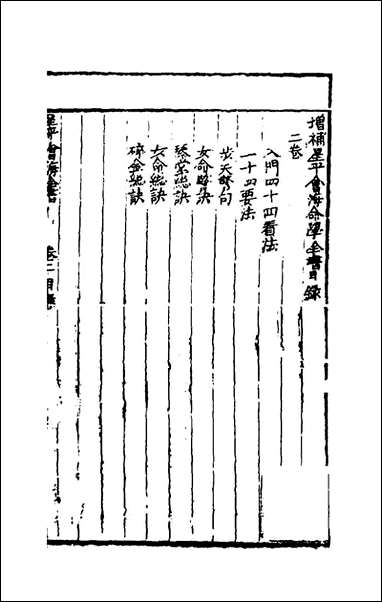 增補星平會海命學全書目錄
二卷
入門四十四看法
一十四要法
步天警句
女命略訣
琴堂總訣
女命總訣
碎金總訣
星平會海全書
卷二目錄